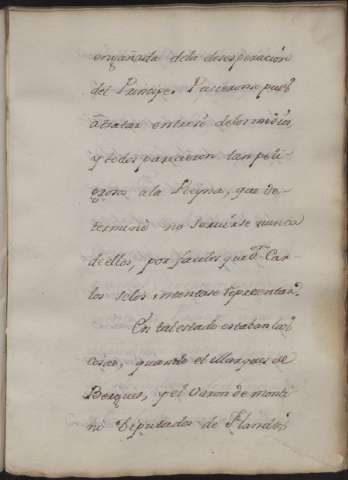 engañada dela desesperación
del Principe. Pusieronse pues
a tratar entre si delos medios,
y todos parecieron tan peli-
grosos a la Reyna, que de
terminó no servirse nunca
de ellos, por faciles que Dn. Car-
los selos intentase representar.
En tal estado estaban las
cosas, quando el Marques de
Bergues, y el Baron de Monti-
ni Diputados de Flandes